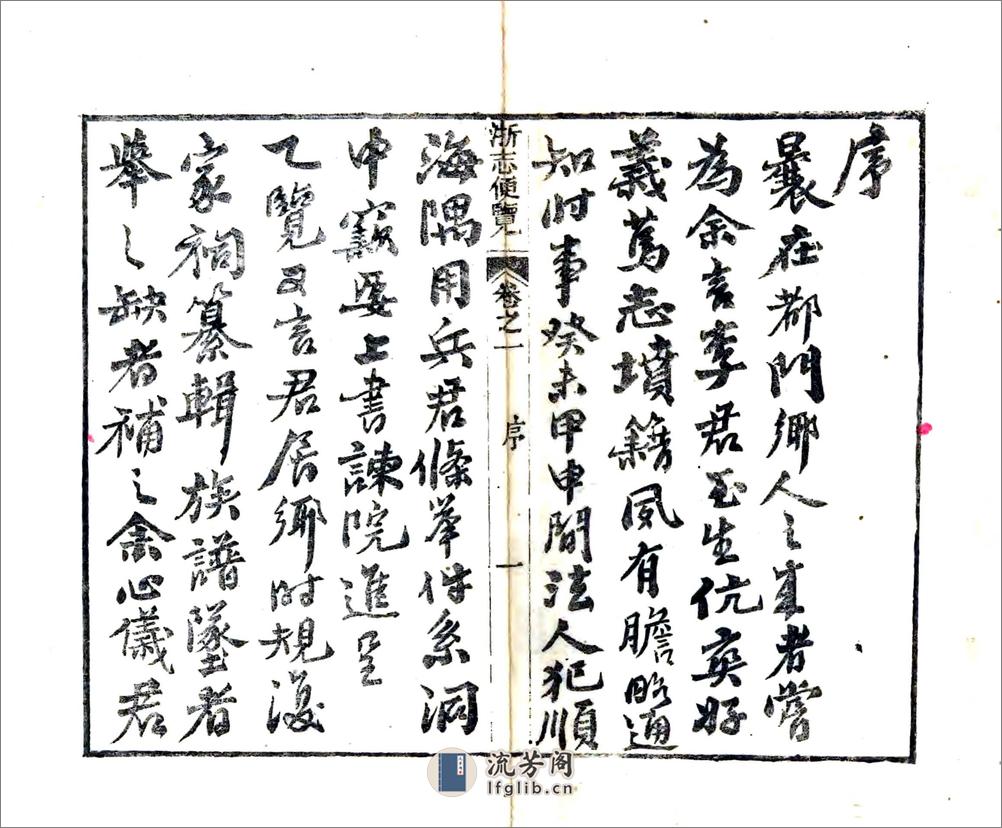 序
曩在都門鄉人之來者嘗
為余言李君玉生伉爽好
義篤志墳籍夙有膽略通
知时事癸未甲申間法人犯順
浙志便覽 卷之一 序 一
海隅用兵君條举件系洞
中竅要上書諫院進呈
乙覽又言君居鄉时規復
家祠纂輯族譜墜者
舉之缺者補之余心儀君
流芳阁
lfglib.cn